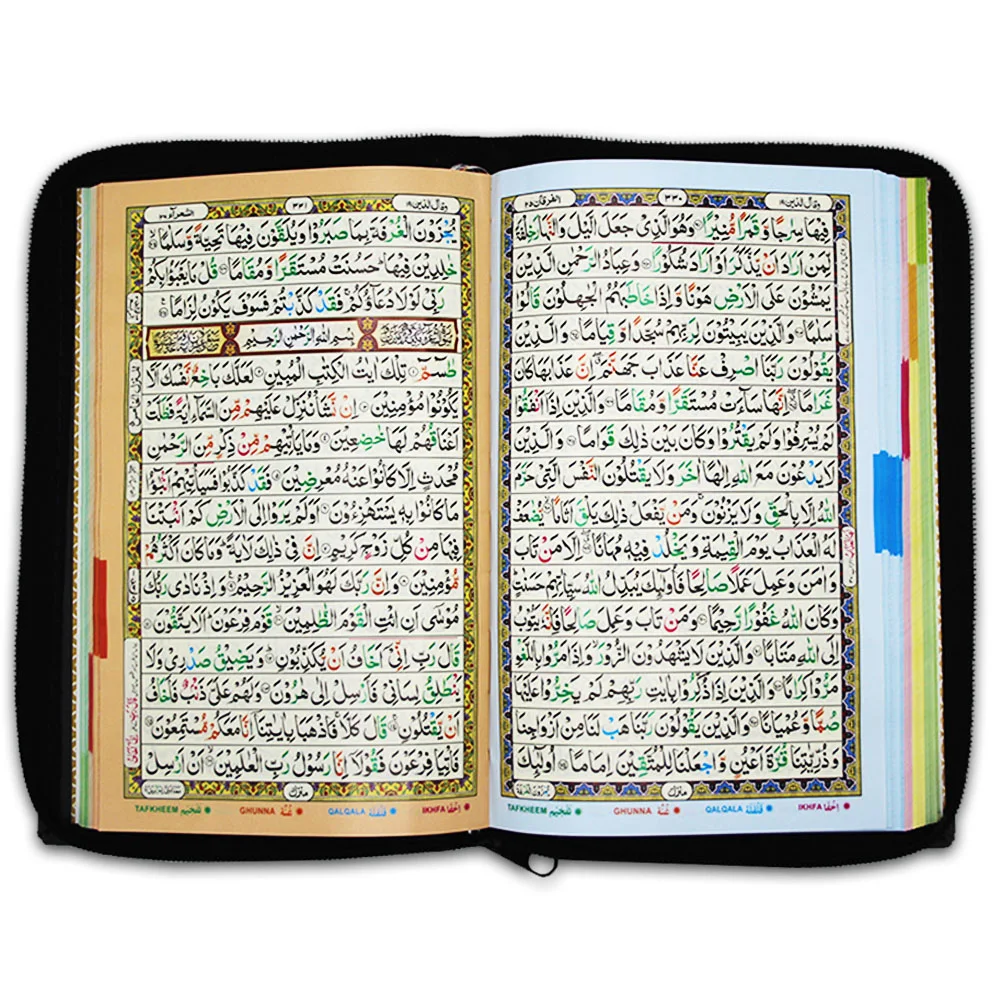 وقال الذين ١٩
٣٣٠
الفرقان ٢٥
فِيْهَا سِرٰجًا وَّقَمَرًا مُّنِيْرًا وَهُوَ الَّذِيْ جَعَلَ الَّيْلَ وَالنَّهَارَ خِلْفَةً
لِّمَنْ اَرَادَ اَنْ يَّذَّكَّرَ اَوْ اَرَادَ شُكُوْرًا وَعِبَادُ الرَّحْمٰنِ الَّذِيْنَ
يَمْشُوْنَ عَلَى الْاَرْضِ هَوْنًا وَّاِذَا خَاطَبَهُمُ الْجٰهِلُوْنَ قَالُوْا
سَلٰمًا وَالَّذِيْنَ يَبِيْتُوْنَ لِرَبِّهِمْ سُجَّدًا وَّقِيَامًا وَالَّذِيْنَ
يَقُوْلُوْنَ رَبَّنَا اصْرِفْ عَنَّا عَذَابَ جَهَنَّمَ اِنَّ عَذَابَهَا كَانَ
غَرَامًا اِنَّهَا سَآءَتْ مُسْتَقَرًّا وَّمُقَامًا وَالَّذِيْنَ اِذَآ اَنْفَقُوْا
لَمْ يُسْرِفُوْا وَلَمْ يَقْتُرُوْا وَكَانَ بَيْنَ ذٰلِكَ قَوَامًا وَالَّذِيْنَ
لَا يَدْعُوْنَ مَعَ اللّٰهِ اِلٰهًا اٰخَرَ وَلَا يَقْتُلُوْنَ النَّفْسَ الَّتِيْ حَرَّمَ
اللّٰهُ اِلَّا بِالْحَقِّ وَلَا يَزْنُوْنَ وَمَنْ يَّفْعَلْ ذٰلِكَ يَلْقَ اَثَامًا يُّضٰعَفْ
لَهُ الْعَذَابُ يَوْمَ الْقِيٰمَةِ وَيَخْلُدْ فِيْهٖ مُهَانًا اِلَّا مَنْ تَابَ
وَاٰمَنَ وَعَمِلَ عَمَلًا صَالِحًا فَاُولٰٓئِكَ يُبَدِّلُ اللّٰهُ سَيِّاٰتِهِمْ حَسَنٰتٍ
وَكَانَ اللّٰهُ غَفُوْرًا رَّحِيْمًا وَمَنْ تَابَ وَعَمِلَ صَالِحًا فَاِنَّهٗ يَتُوْبُ
اِلَى اللّٰهِ مَتَابًا وَالَّذِيْنَ لَا يَشْهَدُوْنَ الزُّوْرَ وَاِذَا مَرُّوْا بِاللَّغْوِ
مَرُّوْا كِرَامًا وَالَّذِيْنَ اِذَا ذُكِّرُوْا بِاٰيٰتِ رَبِّهِمْ لَمْ يَخِرُّوْا عَلَيْهَا
صُمًّا وَّعُمْيَانًا وَالَّذِيْنَ يَقُوْلُوْنَ رَبَّنَا هَبْ لَنَا مِنْ اَزْوَاجِنَا
وَذُرِّيّٰتِنَا قُرَّةَ اَعْيُنٍ وَّاجْعَلْنَا لِلْمُتَّقِيْنَ اِمَامًا اُولٰٓئِكَ
منزل
TAFKHEEM تفخيم GHUNNA غُنَّة QALQALA قلقلة IKHFA اخفا
وقال الذين ١٩
٣٣١
الشعرآء ٢٦
يُجْزَوْنَ الْغُرْفَةَ بِمَا صَبَرُوْا وَيُلَقَّوْنَ فِيْهَا تَحِيَّةً وَّسَلٰمًا
خٰلِدِيْنَ فِيْهَا حَسُنَتْ مُسْتَقَرًّا وَّمُقَامًا قُلْ مَا يَعْبَؤُا بِكُمْ
رَبِّيْ لَوْلَا دُعَآؤُكُمْ فَقَدْ كَذَّبْتُمْ فَسَوْفَ يَكُوْنُ لِزَامًا
بِسْمِ اللّٰهِ الرَّحْمٰنِ الرَّحِيْمِ
طٰسٓمّٓ تِلْكَ اٰيٰتُ الْكِتٰبِ الْمُبِيْنِ لَعَلَّكَ بَاخِعٌ نَّفْسَكَ اَلَّا
يَكُوْنُوْا مُؤْمِنِيْنَ اِنْ نَّشَاْ نُنَزِّلْ عَلَيْهِمْ مِّنَ السَّمَآءِ اٰيَةً فَظَلَّتْ
اَعْنَاقُهُمْ لَهَا خٰضِعِيْنَ وَمَا يَاْتِيْهِمْ مِّنْ ذِكْرٍ مِّنَ الرَّحْمٰنِ
مُحْدَثٍ اِلَّا كَانُوْا عَنْهُ مُعْرِضِيْنَ فَقَدْ كَذَّبُوْا فَسَيَاْتِيْهِمْ اَنْۢبٰٓؤُا
مَا كَانُوْا بِهٖ يَسْتَهْزِءُوْنَ اَوَلَمْ يَرَوْا اِلَى الْاَرْضِ كَمْ اَنْۢبَتْنَا
فِيْهَا مِنْ كُلِّ زَوْجٍ كَرِيْمٍ اِنَّ فِيْ ذٰلِكَ لَاٰيَةً وَمَا كَانَ اَكْثَرُهُمْ
مُّؤْمِنِيْنَ وَاِنَّ رَبَّكَ لَهُوَ الْعَزِيْزُ الرَّحِيْمُ وَاِذْ نَادٰى رَبُّكَ
مُوْسٰٓى اَنِ ائْتِ الْقَوْمَ الظّٰلِمِيْنَ قَوْمَ فِرْعَوْنَ اَلَا يَتَّقُوْنَ
قَالَ رَبِّ اِنِّيْٓ اَخَافُ اَنْ يُّكَذِّبُوْنِ وَيَضِيْقُ صَدْرِيْ وَلَا
يَنْطَلِقُ لِسَانِيْ فَاَرْسِلْ اِلٰى هٰرُوْنَ وَلَهُمْ عَلَيَّ ذَنْۢبٌ فَاَخَافُ
اَنْ يَّقْتُلُوْنِ قَالَ كَلَّا فَاذْهَبَا بِاٰيٰتِنَآ اِنَّا مَعَكُمْ مُّسْتَمِعُوْنَ
فَاْتِيَا فِرْعَوْنَ فَقُوْلَآ اِنَّا رَسُوْلُ رَبِّ الْعٰلَمِيْنَ اَنْ اَرْسِلْ
منزل
TAFKHEEM تفخيم GHUNNA غُنَّة QALQALA قلقلة IKHFA اخفا